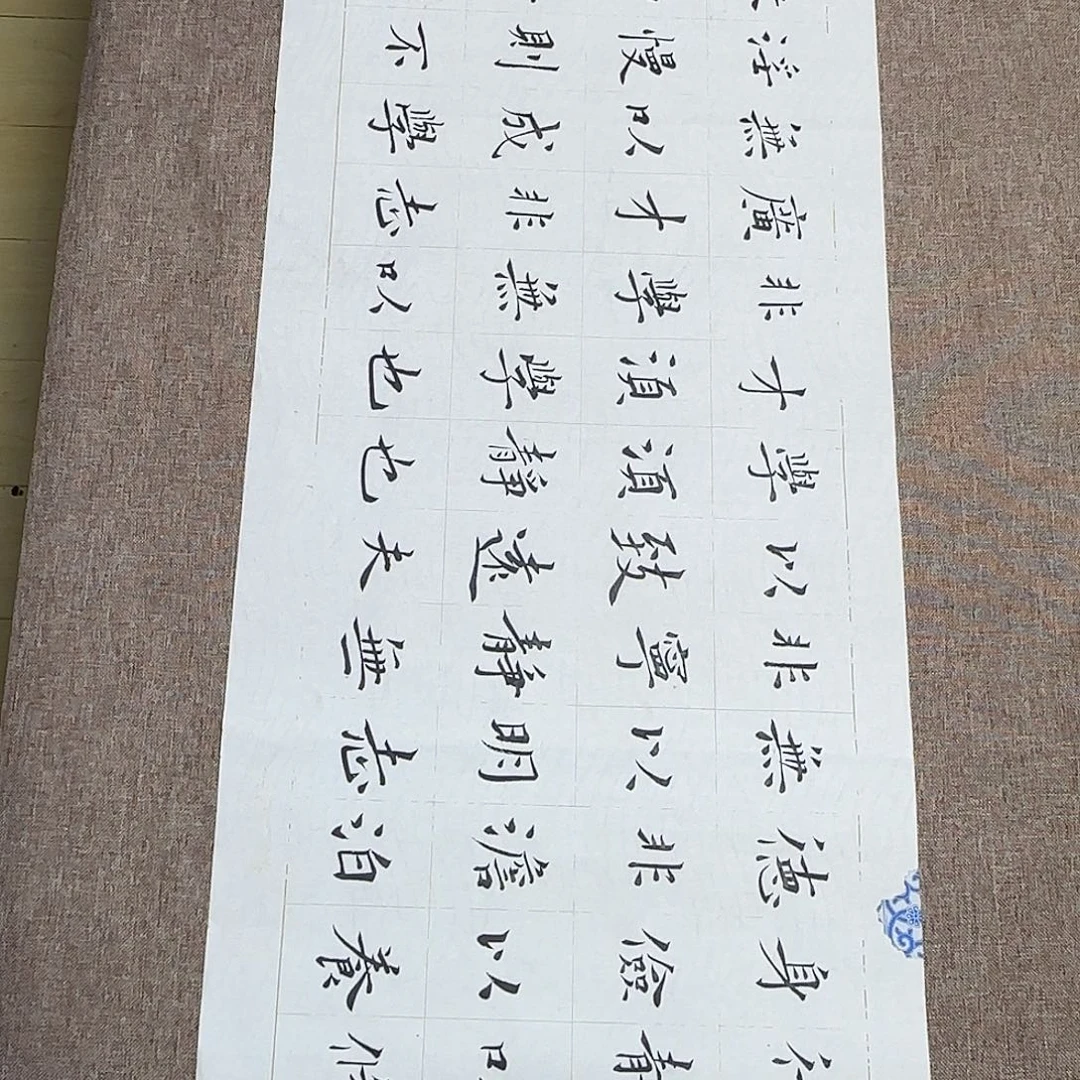 行靜以修
身儉以養
德非澹泊
無以明志
非寧靜無
以致遠夫
學須靜也
才須學也
非學無以
廣才非志
無以成學
淫慢則不